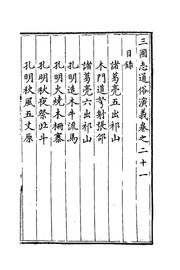 三國志通俗演義卷之二十一
目錄
諸葛亮五出祁山
木門道弩射張郃
諸葛亮六出祁山
孔明造木牛流馬
孔明火燒木柵寨
孔明秋夜祭北斗
孔明秋風五丈原